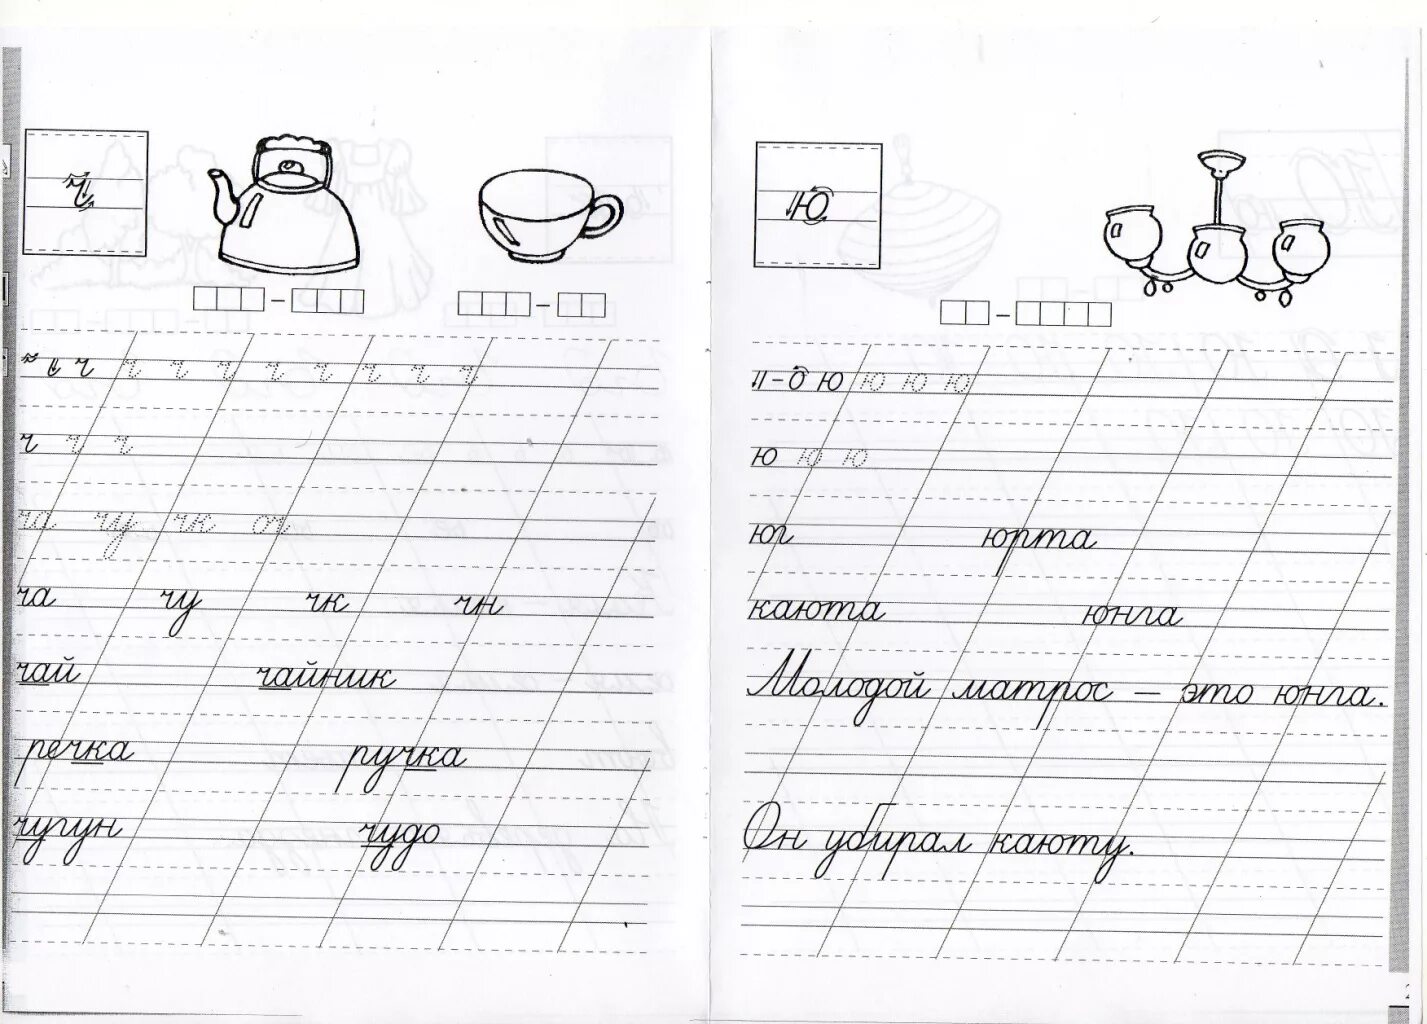 ч
ч ч ч ч ч ч ч ч ч
ч ч ч
ча чу чк оч
ча чу чк чн
чай чайник
речка ручка
чугун чудо
ю
ю ю ю ю
ю ю ю
юг юрта
каюта юнга
Молодой матрос — это юнга.
Он убирал каюту.